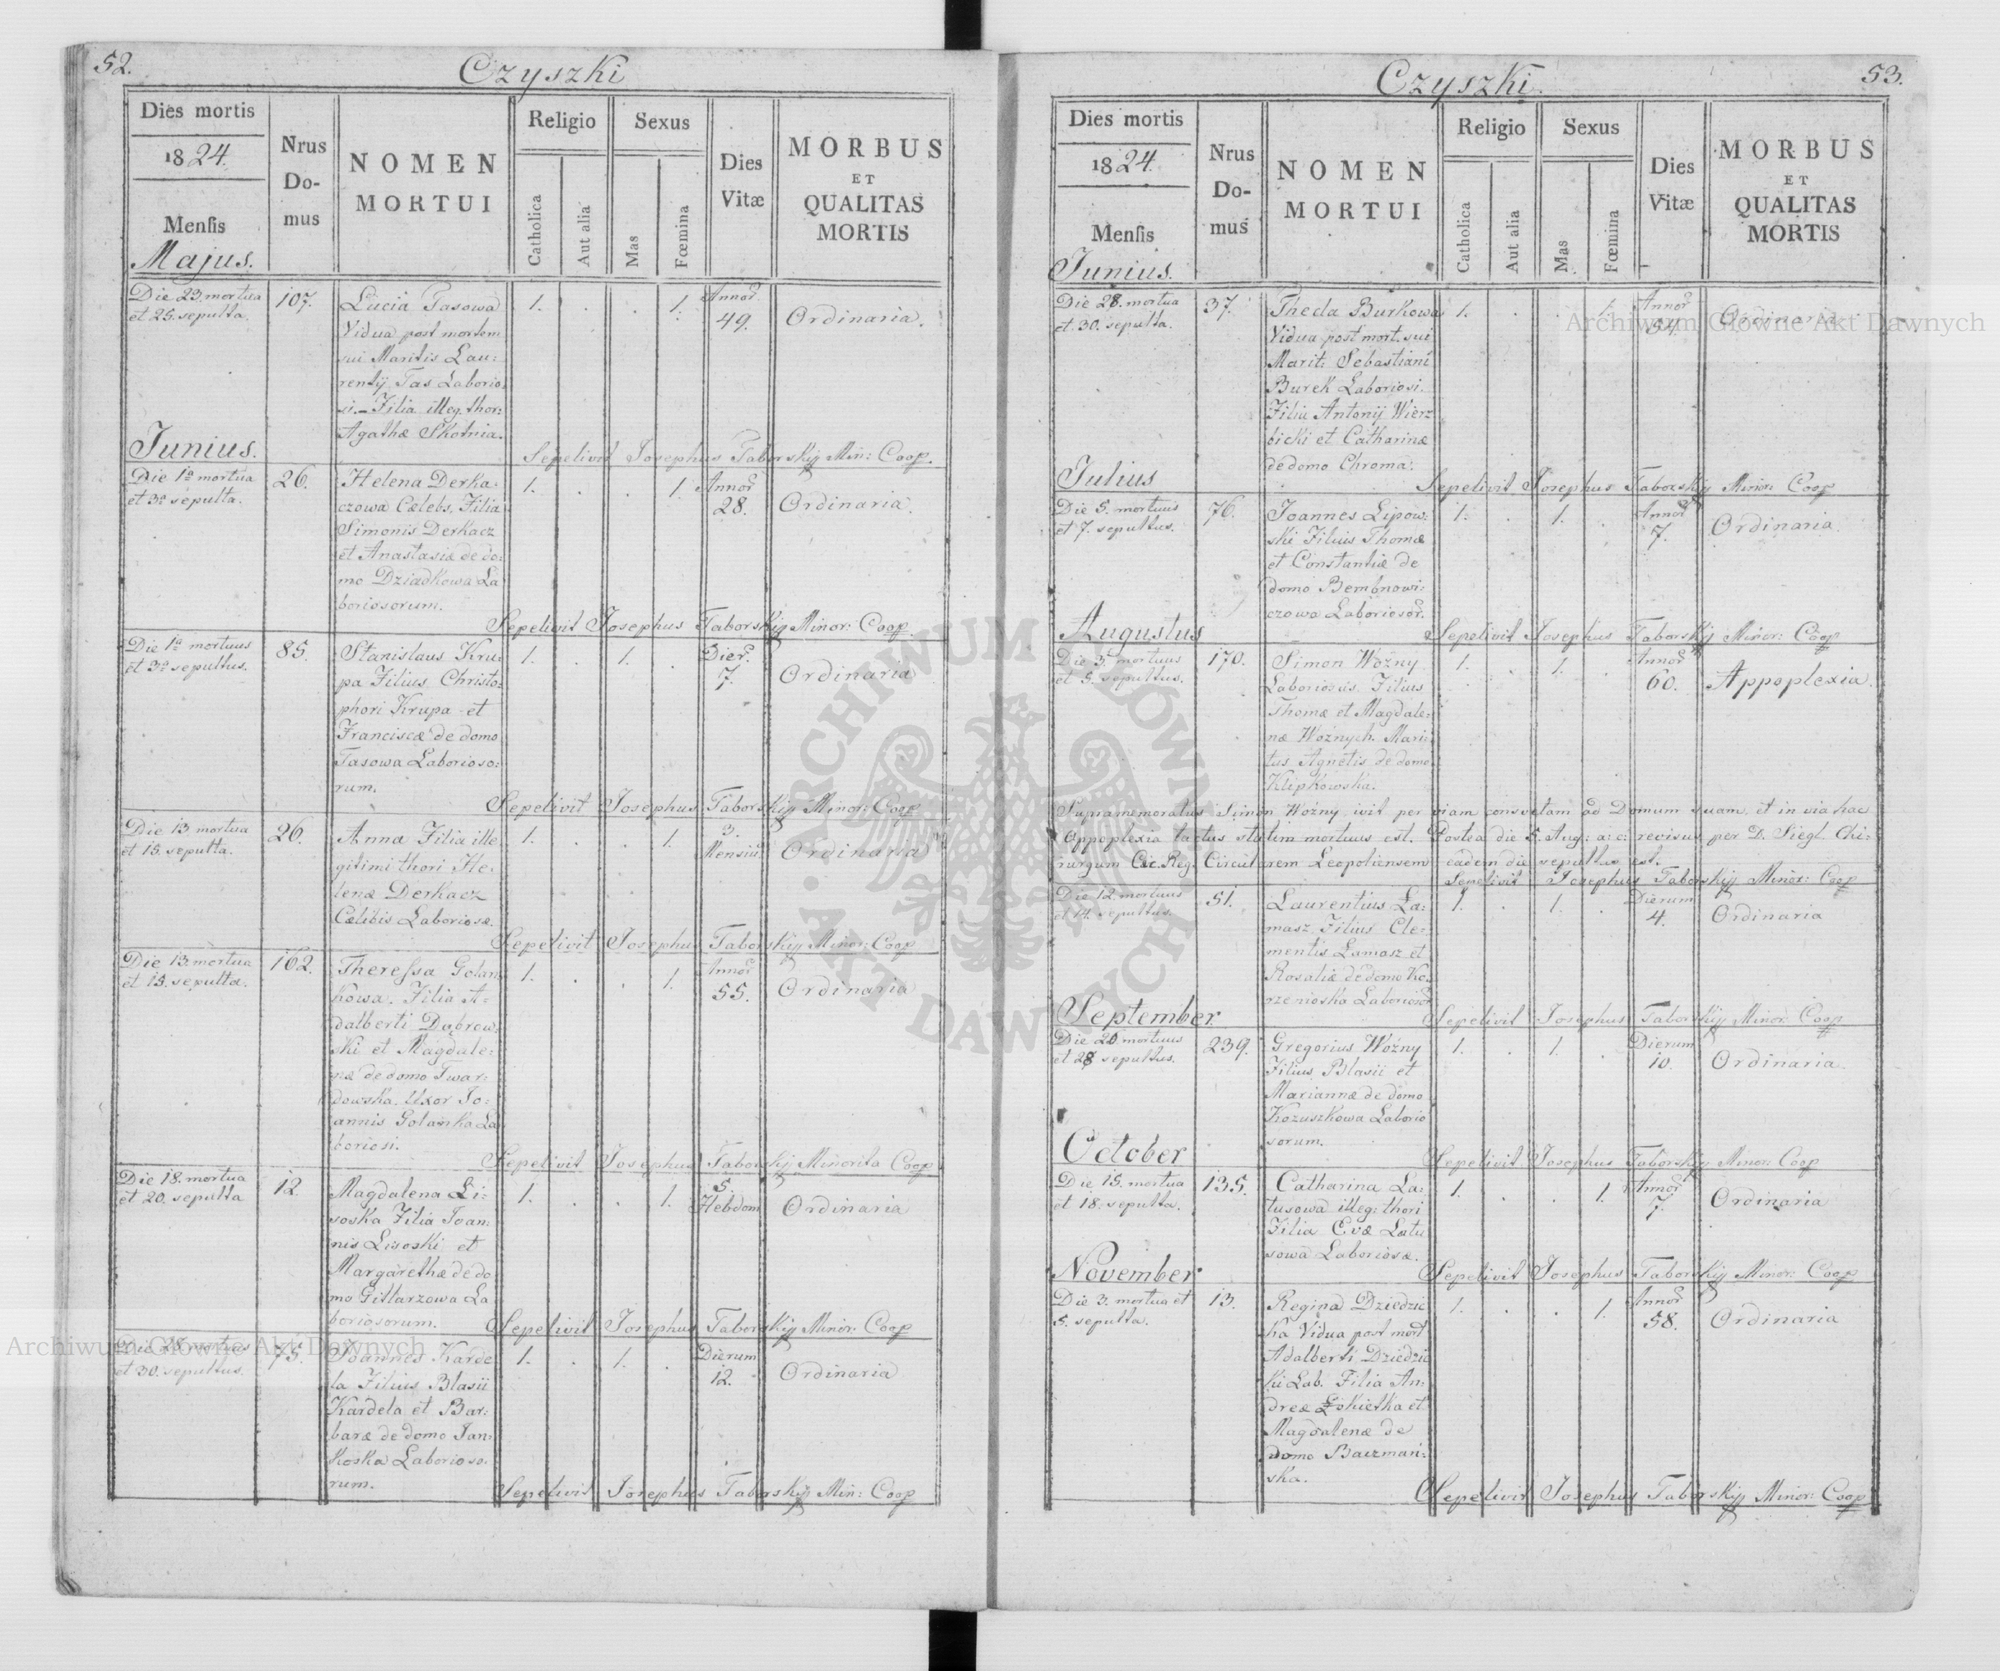 52.
Czyszki
Dies mortis
1824.
Mensis
Majus.
Nrus
Do-
mus
NOMEN
MORTUI
Religio
Catholica
Aut alia
Sexus
Mas
Fœmina
Dies
Vitæ
MORBUS
ET
QUALITAS
MORTIS
Die 23. mortua
et 25. sepulta.
107.
Lucia Tasowa
Vidua post mortem
sui Maritis Lau:
rentij Tas Laborio
si. Filia illeg. thor:
Agathæ Skotnia.
1. . . 1.
Annor
49.
Ordinaria.
Sepelivit Josephus Taborskij Min: Coop.
Junius.
Die 1a mortua
et 3a sepulta.
26.
Helena Derka:
czowa Cælebs, Filia
Simonis Derkacz
et Anastasiæ de do:
mo Dziadkowa La
boriosorum.
1. . . 1.
Annor
28.
Ordinaria.
Sepelivit Josephus Taborskij Minor: Coop.
Die 1a mortuus
et 3a sepultus.
85.
Stanislaus Kru:
pa Filius Christo:
phori Krupa et
Franciscæ de domo
Tasowa Laborioso:
rum.
1. . 1. .
Dier.
7.
Ordinaria
Sepelivit Josephus Taborskij Minor: Coop
Die 13 mortua
et 15. sepulta.
26.
Anna Filia ille
gitimi thori He:
lenæ Derkacz
Cælibis Laboriosæ.
1. . . 1.
3.
Mensiu
Ordinaria
Sepelivit Josephus Taborskij Minor: Coop
Die 13. mortua
et 15. sepulta.
162.
Theressa Golan:
kowa. Filia A:
dalberti Dabrow:
ski et Magdale:
næ de domo Twar:
dowska. Uxor Jo:
annis Golanka La
boriosi.
1. . . 1.
Annor
55.
Ordinaria
Sepelivit Josephus Taborskij Minorita Coop
Die 18. mortua
et 20. sepulta
12.
Magdalena Li:
soska Filia Joan:
nis Lisoski et
Margarethæ de do
mo Gitlarzowa La
boriosorum.
1. . . 1.
5.
Hebdom
Ordinaria
Sepelivit Josephus Taborskij Minor: Coop
Die 28. mortuus
et 30. sepultus.
75.
Joannes Karde
la Filius Blasii
Kardela et Bar:
baræ de domo Jan:
koska Laborioso:
rum.
1. . 1. .
Dierum
12.
Ordinaria
Sepelivit Josephus Taborskij Min: Coop
53.
Czyszki.
Dies mortis
1824.
Mensis
Junius.
Nrus
Do-
mus
NOMEN
MORTUI
Religio
Catholica
Aut alia
Sexus
Mas
Fœmina
Dies
Vitæ
MORBUS
ET
QUALITAS
MORTIS
Die 28. mortua
et. 30. sepulta.
37.
Thecla Burkowa
Vidua post mort. sui
Marit: Sebastiani
Burek Laboriosi.
Filia Antonij Wierz
bicki et Catharinæ
de domo Chroma.
1. . . 1.
Annor
54.
Ordinaria
Sepelivit Josephus Taborskij Minor: Coop
Julius
Die 5. mortuus
et 7. sepultus.
76.
Joannes Lipow:
ski Filuis Thomæ
et Constantiæ de
domo Bembnowi:
czowa Laboriosor.
1. . 1. .
Annor
7.
Ordinaria
Sepelivit Josephus Taborskij Minor: Coop
Augustus
Die 3. mortuus
et 5. sepultus.
170.
Simon Woźny
Laboriosus Filius
Thomæ et Magdale:
næ Woznych. Mari:
tus Agnetis de domo
Klipkowska.
1. . 1. .
Annor
60.
Appoplexia.
Supramemoratus Simon Woźny ivit per viam consvetam ad Domum suam, et in via hac
Oppoplexia tactus statim mortuus est. Postea die 5. Aug: a: c: revisus per D. Siegl Chi:
rurgum Cæ. Reg. Circularem Leopoliensem eadem die sepultus est.
Sepelivit Josephus Taborskij Minor: Coop
Die 12. mortuus
et 14. sepultus.
51.
Laurentius Ła:
masz Filius Cle:
mentis Łamasz et
Rosaliæ de domo Ko:
rzenioska Laboriosor
1. . 1. .
Dierum
4.
Ordinaria
Sepelivit Josephus Taborskij Minor: Coop
September
Die 20 mortuus
et 28 sepultus.
239.
Gregorius Woźny
Filius Blasii et
Mariannæ de domo
Kozuszkowa Laborio
sorum.
1. . 1. .
Dierum
10.
Ordinaria.
Sepelivit Josephus Taborskij Minor: Coop
October
Die 15. mortua
et 18. sepulta.
135.
Catharina La:
tusowa illeg: thori
Filia Evæ Latu
sowa Laboriosæ.
1. . . 1.
Annor
7.
Ordinaria
Sepelivit Josephus Taborskij Minor: Coop
November
Die 3. mortua et
5. sepulta.
13.
Regina Dziedzic
ka Vidua post mort
Adalberti Dziedzic
ki Lab. Filia An:
dreæ Łokietka et
Magdalenæ de
domo Baczmań:
ska.
1. . . 1.
Annor
58.
Ordinaria
Sepelivit Josephus Taborskij Minor: Coop
Archiwum Główne Akt Dawnych
Archiwum Główne Akt Dawnych
ARCHIWUM GŁÓWNE AKT DAWNYCH